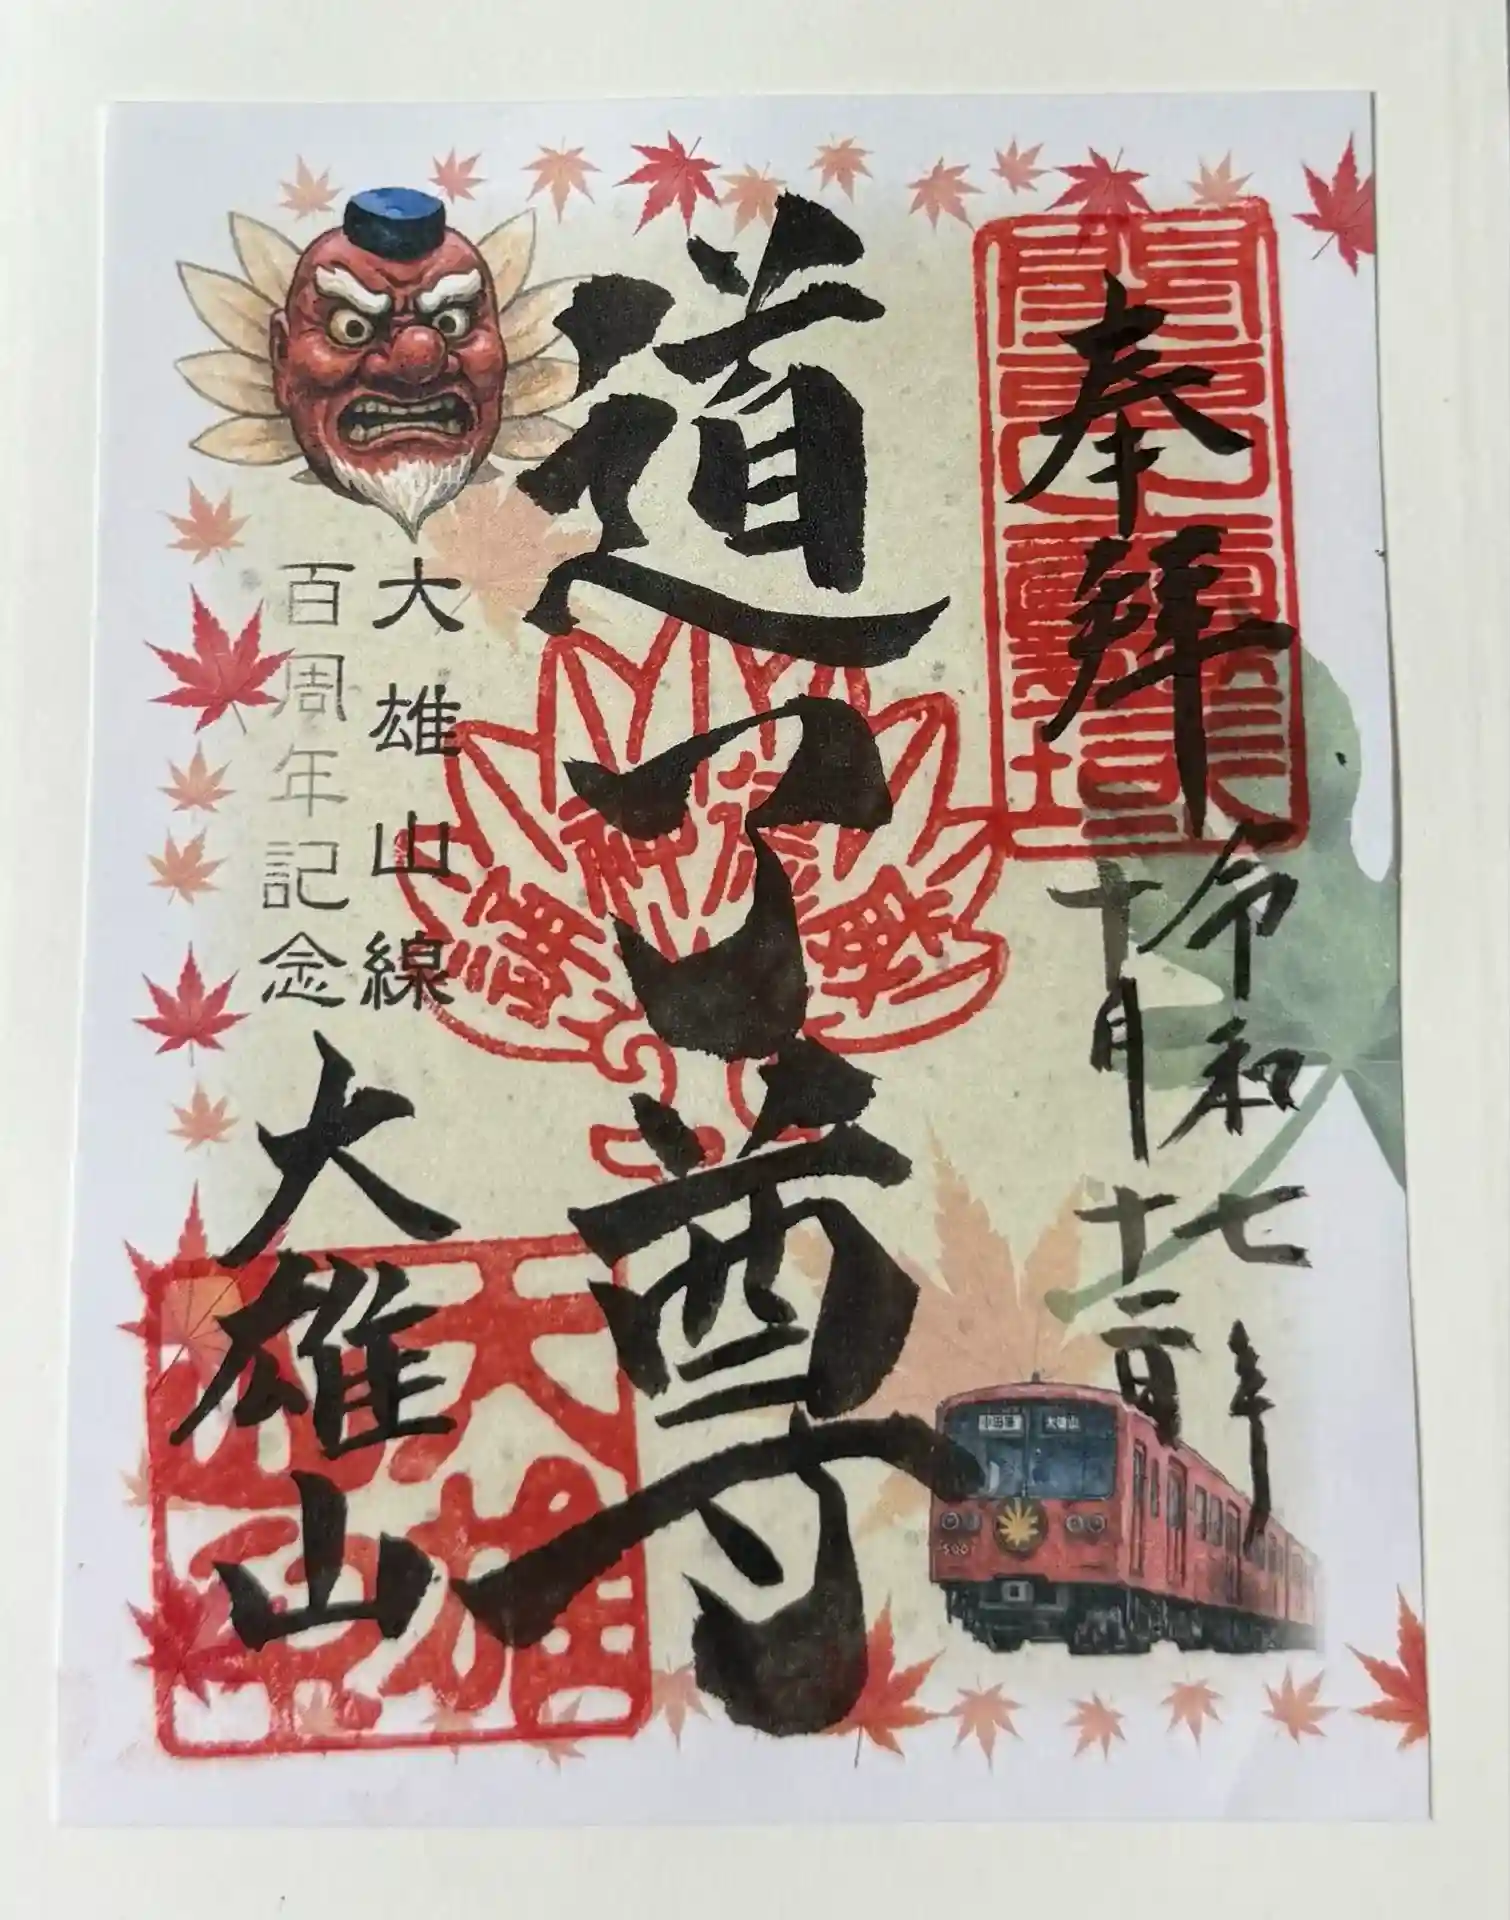 奉拜
令和七年
十月十二日
道了尊
大雄山線
百周年記念
大雄山
小田原
大雄山
500